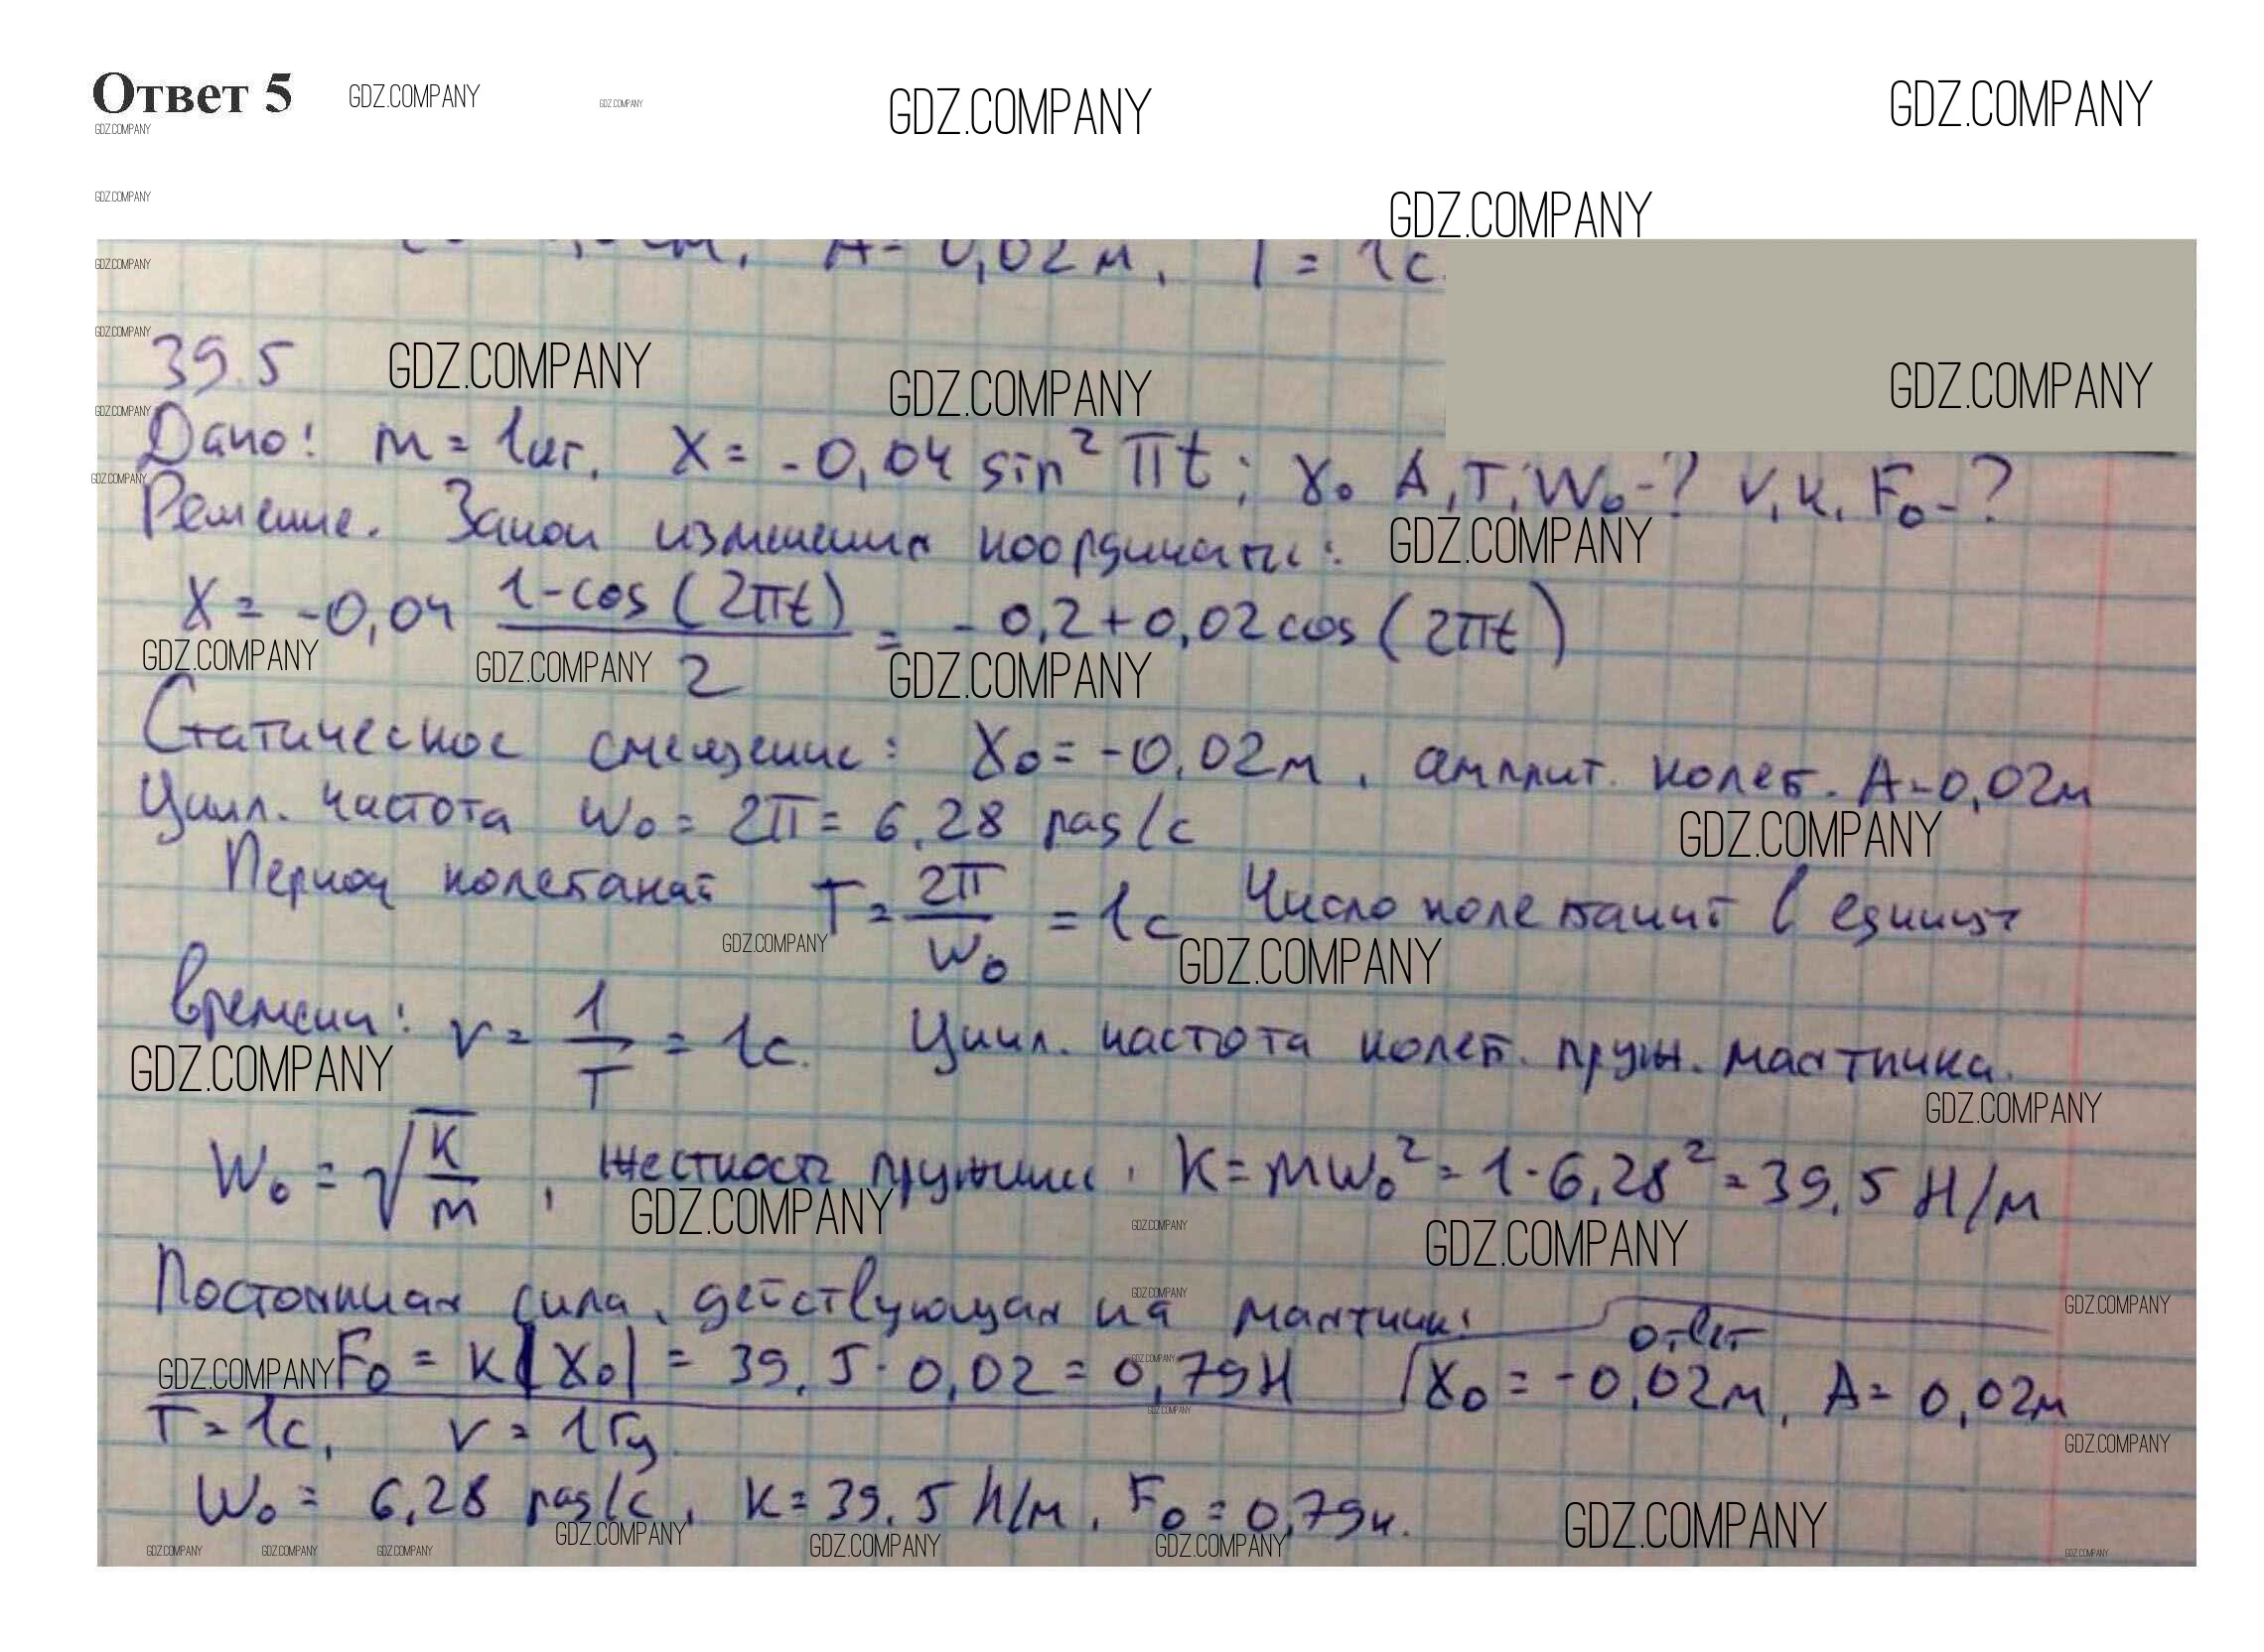 Ответ 5 GDZ.COMPANY GDZ.COMPANY GDZ.COMPANY GDZ.COMPANY
GDZ.COMPANY
GDZ.COMPANY GDZ.COMPANY
GDZ.COMPANY A = 0,02м, T = 1с.
GDZ.COMPANY
39.5 GDZ.COMPANY GDZ.COMPANY GDZ.COMPANY
GDZ.COMPANY
Дано: m = 1кг, X = -0,04 sin² πt; X₀ A, T, W₀-? V, k, F₀-?
GDZ.COMPANY
Решение. Закон изменения координаты: GDZ.COMPANY
X = -0,04 (1-cos(2πt))/2 = -0,2+0,02cos(2πt)
GDZ.COMPANY GDZ.COMPANY GDZ.COMPANY
Статическое смещение: X₀ = -0,02м, амплит. колеб. A=0,02м
Цикл. частота W₀ = 2π = 6,28 рад/с GDZ.COMPANY
Период колебаний T = 2π/W₀ = 1с Число колебаний в единицу
GDZ.COMPANY GDZ.COMPANY
времени: V = 1/T = 1с. Цикл. частота колеб. пруж. маятника.
GDZ.COMPANY GDZ.COMPANY
W₀ = √(k/m), жесткость пружины, K = mW₀² = 1·6,28² = 39,5 Н/м
GDZ.COMPANY GDZ.COMPANY GDZ.COMPANY
GDZ.COMPANY
Постоянная сила, действующая на маятник: GDZ.COMPANY
ответ
GDZ.COMPANY F₀ = K|X₀| = 39,5·0,02 = 0,79Н GDZ.COMPANY X₀ = -0,02м, A = 0,02м
GDZ.COMPANY
T = 1с, V = 1Гц. GDZ.COMPANY
W₀ = 6,28 рад/с, K = 39,5 Н/м, F₀ = 0,79н. GDZ.COMPANY
GDZ.COMPANY GDZ.COMPANY GDZ.COMPANY GDZ.COMPANY GDZ.COMPANY GDZ.COMPANY GDZ.COMPANY